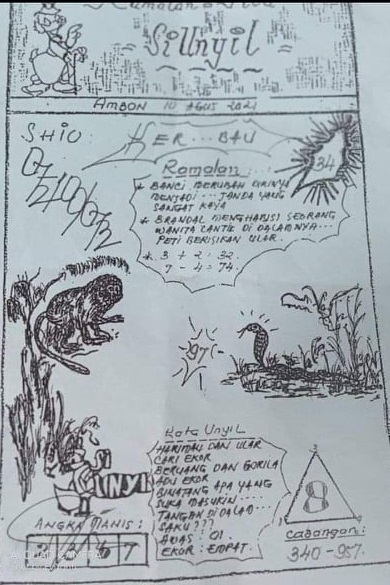 Si Unyil
AMBON 10 AGUS 2021
SHIO:
KER...BAU
34
Ramalan
* BANCI BERUBAH DIRINYA
MENJADI... JANDA YANG
SANGAT KAYA
* BRANDAL MENGHABISI SEORANG
WANITA CANTIK DI DALAMNYA...
PETI BERISIKAN ULAR.
* 3 + 2 = 32.
7 - 4 = 74.
97
Kata Unyil
HARIMAU DAN ULAR
CARI EKOR
BERUANG DAN GORILA
ADU EKOR
BINATANG APA YANG
SUKA MASUKIN....
TANGAN DI DALAM...
SAKU???
AWAS: 01
EKOR: EMPAT.
UNYIL
8
ANGKA MANIS:
Cabangan:
340-957.